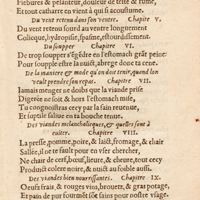 Fiebures & pesanteur, douleur de teste & rume,
Et tout catharre en vient à qui s'i acoustume.
Du vent retenu dans son ventre. Chapitre V.
Du vent retenu sourd au ventre longuement
Colicque, hydropisie, spasme, estourdissement.
Du soupper Chapitre VI.
De trop soupper s'égédre en l'estomach grãt peine:
Pour souppple estre la nuict, abrege donc ta cene.
De la maniere & mode qu'on doit tenir, quand lon
veult prendre son repas. Chapitre VII.
Iamais menger ne doibs que la viande prise
Digerée ne soit & hors l'estomach mise,
Tu congnoistras cecy par la fain reuenue,
Et subtile saliue en ta bouche tenue.
Des viandes melancholicques, & quelles sont à
euiter. Chapitre VIII.
La presse, pomme, poire, & laict, fromage, & clair
Sallée, il te fault pour en vser chercher,
Ne chair de cerf, bœuf, lieure, & cheure, tout cecy
Product colere noire, & nuict au foible aussi.
Des viandes bien nourrissantes. Chapitre IX.
Oeufs frais, & rouges vins, brouetz, & gras potage,
Et pain de pur fourmẽt sõt sains pour nostre vsage.